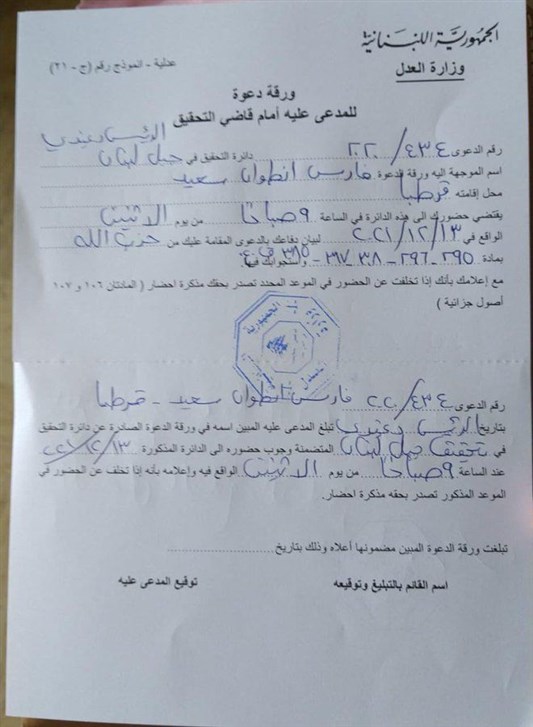 الجمهورية اللبنانية
وزارة العدل
عدلية - انموذج رقم (ج - ٢١)
ورقة دعوة
للمدعى عليه أمام قاضي التحقيق
رقم الدعوى ٤٣٤/٢٠٢٠ دائرة التحقيق في جبل لبنان الرئيس
اسم الموجهة اليه ورقة الدعوة فارس انطوان سعيد
محل إقامته قرطبا
يقتضي حضورك الى هذه الدائرة في الساعة ٩ صباحا من يوم الاثنين
الواقع في ٢٠٢١/١٢/١٣ لبيان دفاعك بالدعوى المقامة عليك من حزب الله
بمادة ٢٩٥-٢٩٦-٣٨-٣١٧ واستجوابك فيها.
مع إعلامك بأنك إذا تخلفت عن الحضور في الموعد المحدد تصدر بحقك مذكرة احضار (المادتان ١٠٦ و ١٠٧
أصول جزائية)
رقم الدعوى ٤٣٤/٢٠٢٠ فارس انطوان سعيد - قرطبا
بتاريخ الرئيس تبلغ المدعى عليه المبين اسمه في ورقة الدعوة الصادرة عن دائرة التحقيق
في تحقيق جبل لبنان المتضمنة وجوب حضوره الى الدائرة المذكورة ٢٠٢١/١٢/١٣
عند الساعة ٩ صباحا من يوم الاثنين الواقع فيه وإعلامه بأنه إذا تخلف عن الحضور في
الموعد المذكور تصدر بحقه مذكرة احضار.
تبلغت ورقة الدعوة المبين مضمونها أعلاه وذلك بتاريخ
اسم القائم بالتبليغ وتوقيعه
توقيع المدعى عليه